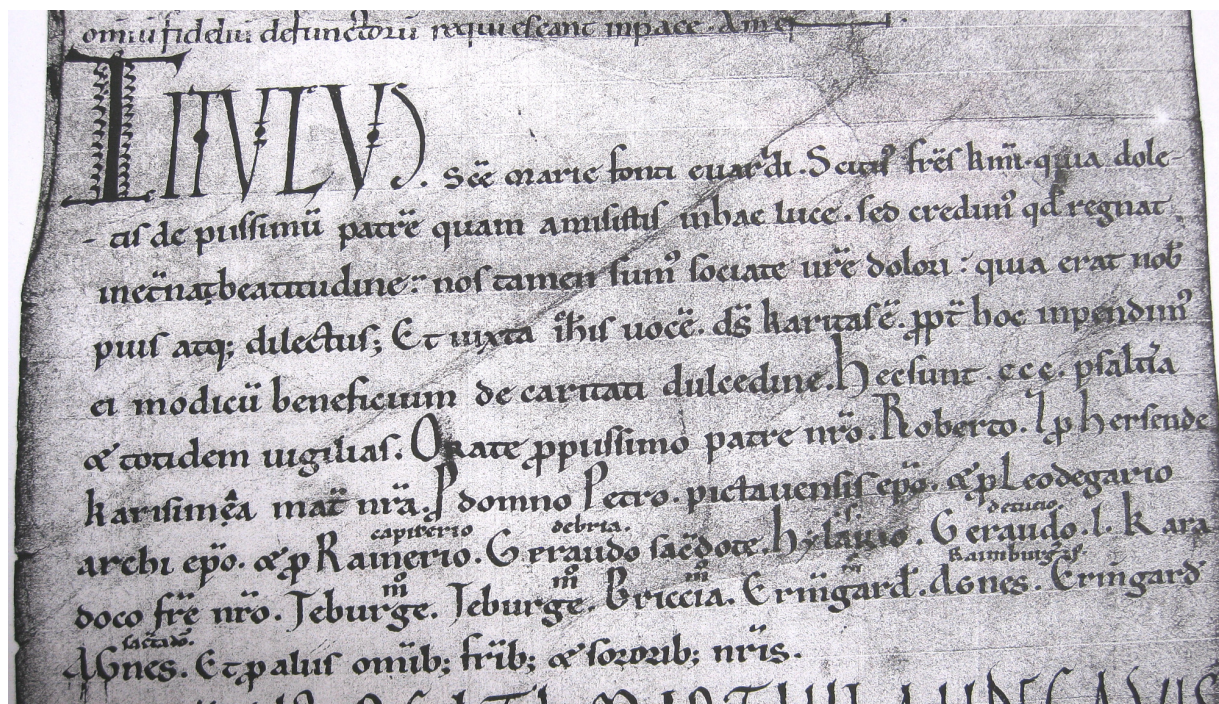 omiū fidelium defunctorū requiescant inpace. Amen
TITULUS. Scē Marie fonti euardi. Scitis frēs kmī. quia dole-
- tis de piissimū patrē quam amisistis inhac luce. sed credim' qđ regnat
inet̄na beatitudine: nos tamen sum' sociate urē dolori: quia erat nob
pius atq; dilectus; Et iuxta ihīs uocē. ds̄ karitas ē. ppt̄ hoc inpendim'
ei modicū beneficium de caritati dulcedine. Hecsunt .ccc. psaltia
& totidem uigilias. Orate ppiissimo patre nrō. Roberto. I p hersende
karisimęa mat̄ nrā. P domno Petro. pictauensis epō. & p Leodegario
archi epō. & p Rainerio. Geraudo sac̄dote. hylario. Geraudo. l. K ara
capicerio debria. detucio.
doco frē nrō. Jeburge. Jeburge. Briccia. Ermgard. Agnes. Ermgard
mō mō mō Raimburgis
AGnes. Et p alus omīb; frīb; & sororib; nrīs.